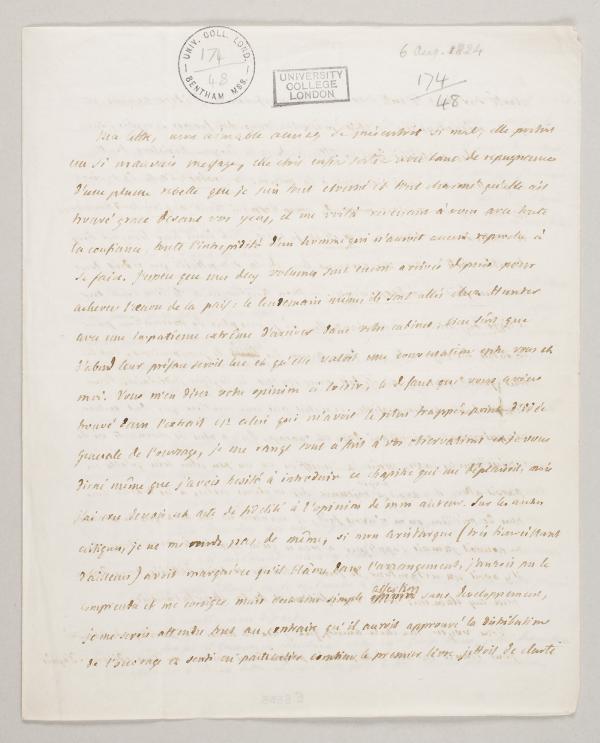 UNIV. COLL. LOND.
174
48
BENTHAM MSS.
UNIVERSITY
COLLEGE
LONDON
6 Aug. 1824
174
48
Ma lettre, mon aimable si mal, elle portoit
un si mauvais message, elle étoit enfin sortie avec tant de répugnance
d'une plume rebelle que je suis tout et tout charmé qu'elle ait
trouvé grace devant vos yeux, et me voilà revenant à vous avec toute
la confiance, toute l'intrépidité d'un homme qui n'auroit aucun reproche à
se faire. que mes deux volumes sont encor arrivés depuis pour
achever de la paix: le lendemain même ils sont allés chez Hunter
avec une impatience extrême d'arriver dans votre cabinet, bien sûrs que
d'abord leur préface seroit lue et qu'elle valoit une conversation entre vous et
moi. Vous m'en direz votre opinion à loisir, le défaut que vous aviez
trouvé dans l'extrait est celui qui m'avoit le plus frappé, point d'idée
generale de l'ouvrage, je me range tout à fait à vos observations et je vous
dirai même que j'avois hesité à introduire ce chapitre qui me déplaisoit, mais
j'ai cru devoir cet acte de fidélité à l'opinion de mon auteur. Sur les autres
critiques, je ne me rends pas de même, si mon Aristarque (très bienveillant
d'ailleurs) avoit marqué ce qu'il blâme dans l'arrangement, j'aurois pu le
comprendre et me corriger, mais c'est une simple assertion sans developpement,
je me serois attendu tout au contraire qu'il auroit approuvé la distribution
de l'ouvrage et senti en particulier combien le premier livre jettoit de clarté